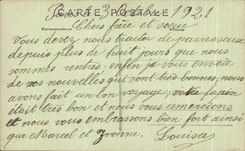 CARTE POSTALE
le 3 Octobre 1921
Chers frère et soeur
Vous devez nous traiter de paresseux
depuis plus de huit jours que nous
sommes rentrés. enfin je vous envoie
de nos nouvelles qui sont très bonnes, nous
avons fait un bon voyage, votre lapin
était très bon et nous vous remercions
et nous vous embrassons bien fort ainsi
que Marcel et Yvonne. Louisa